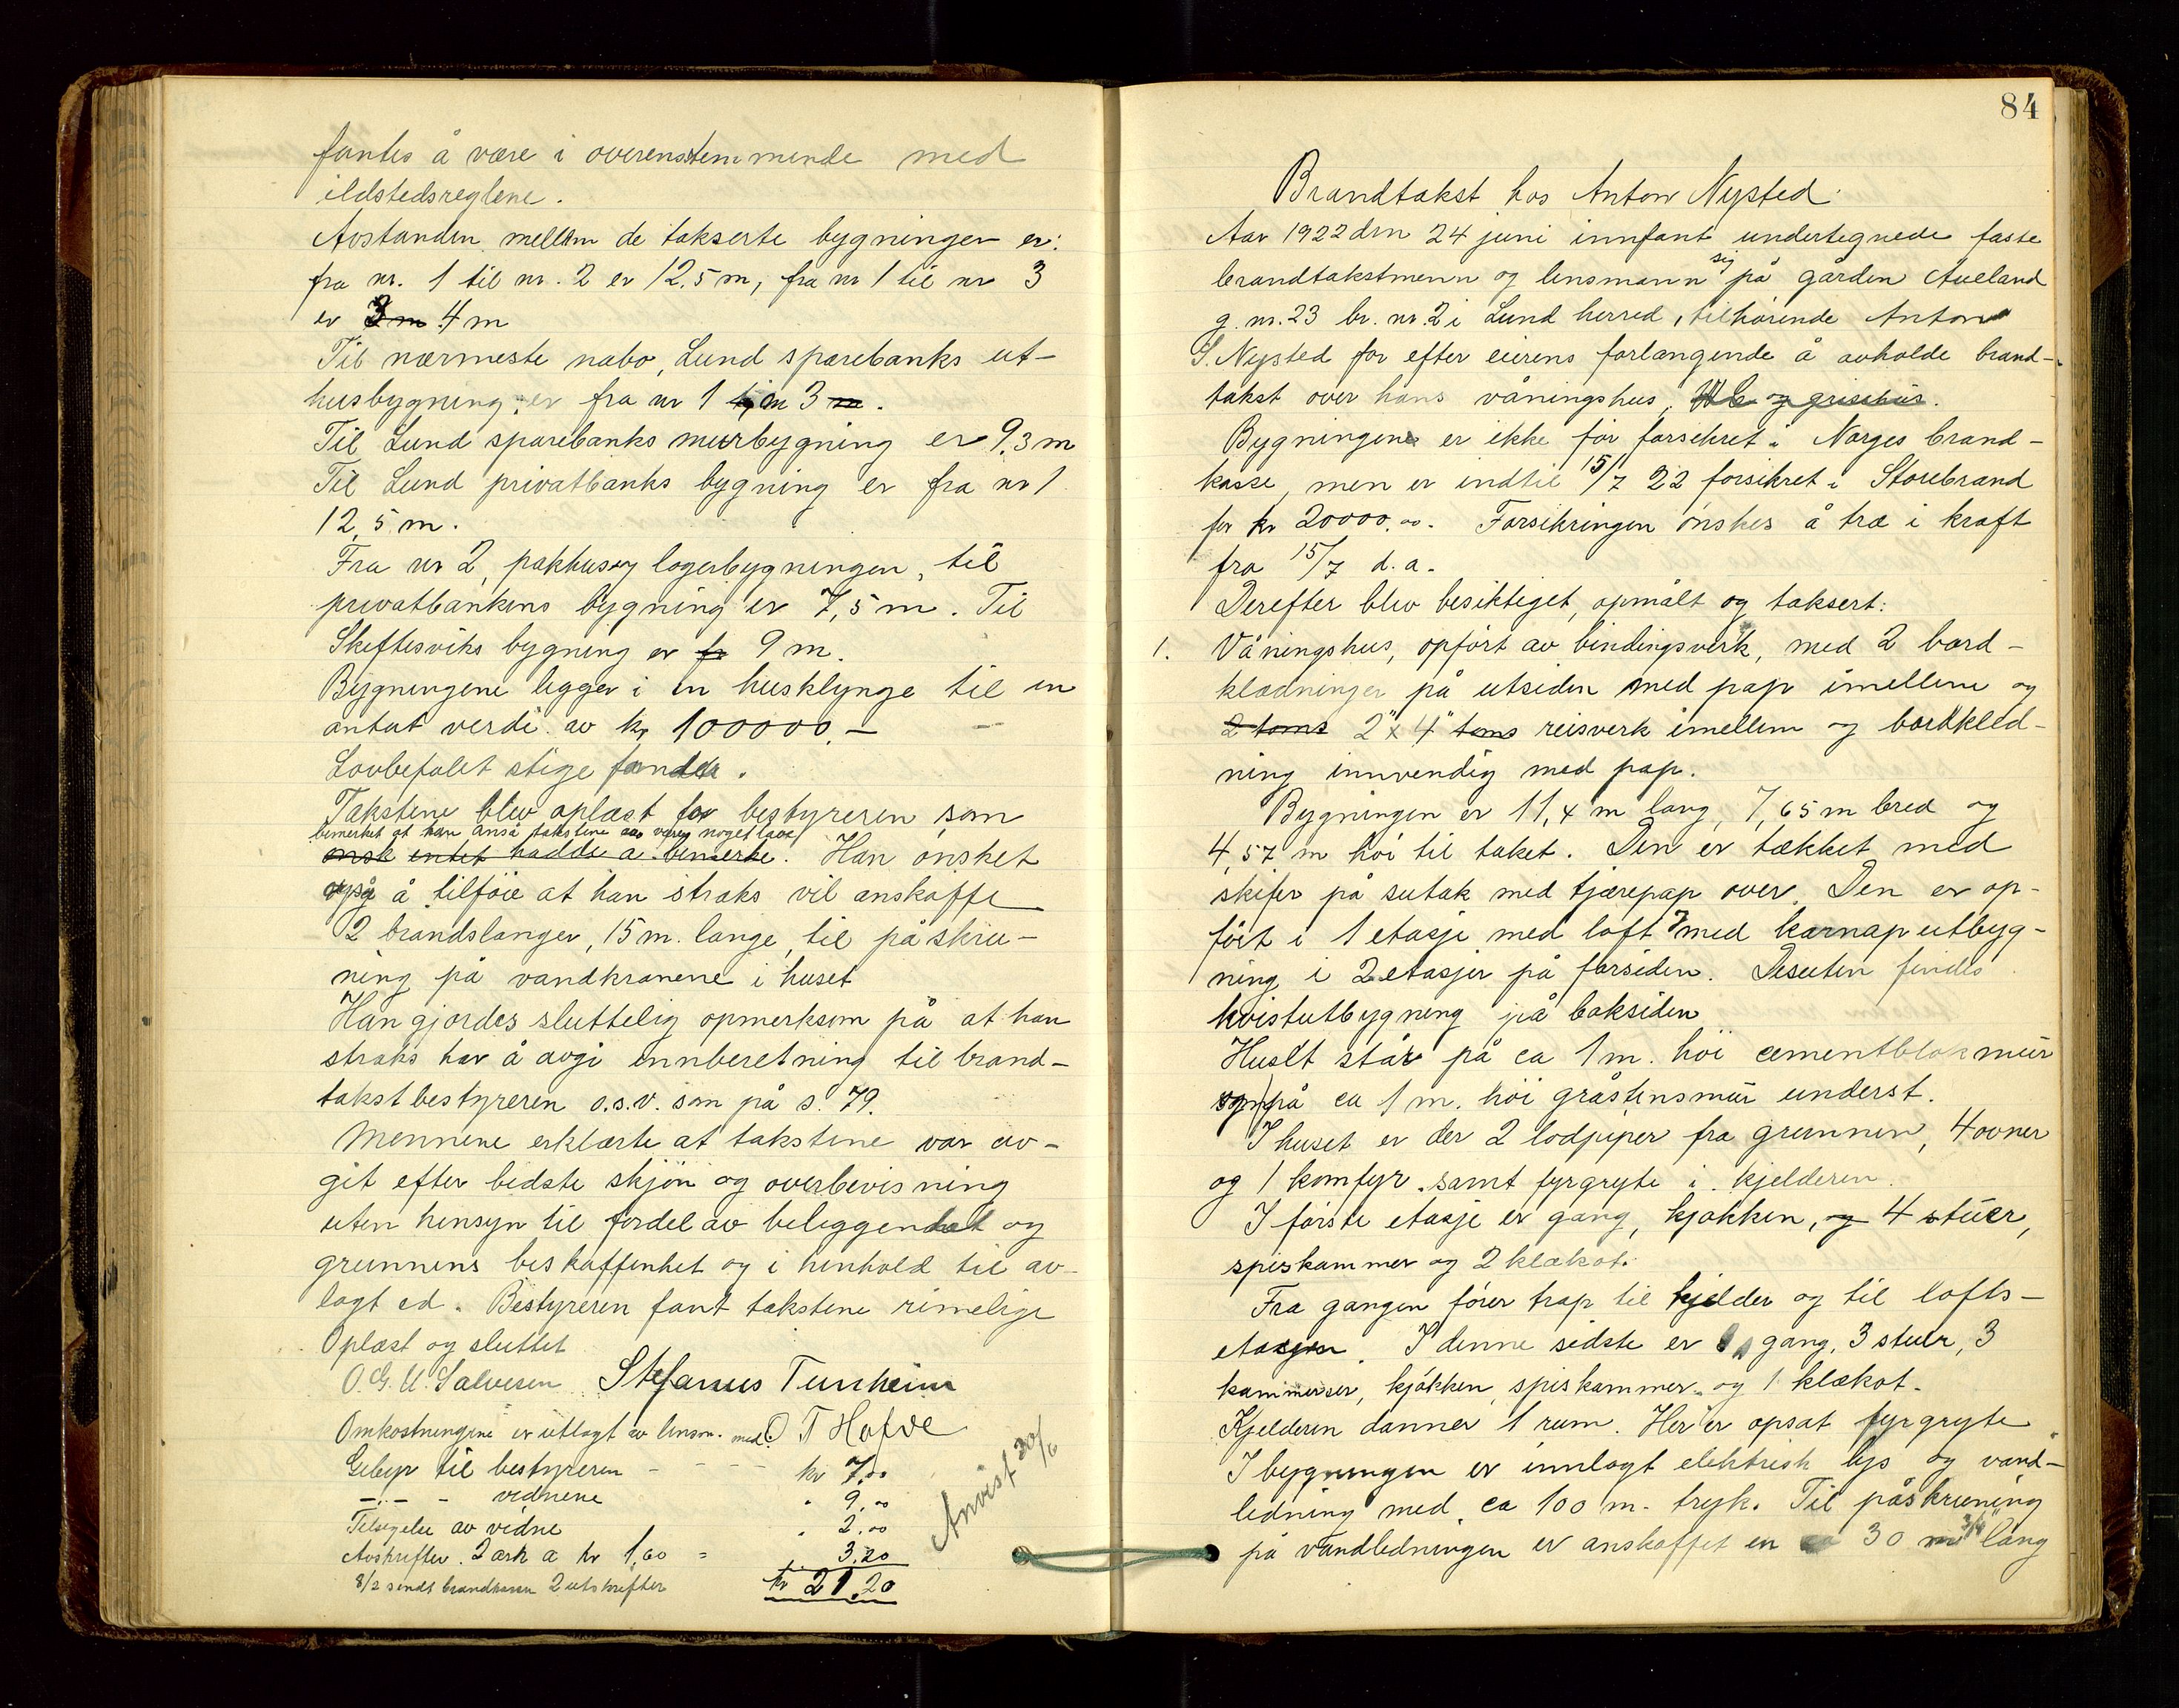 fantes å være i overenstemmende med
ildstedsreglene.
Avstanden mellem de takserte bygninger er:
fra nr. 1 til nr. 2 er 12,5 m, fra nr 1 til nr 3
er 3 m 4 m
Til nærmeste nabo, Lund sparebanks ut-
husbygning, er fra nr 1 3 m.
Til Lund sparebanks murbygning er 9,3 m
Til Lund privatbanks bygning er fra nr 1
12,5 m.
Fra nr 2, pakhus og lagerbygningen, til
privatbankens bygning er 7,5 m. Til
Skeftesviks bygning er fr 9 m.
Bygningene ligger i en husklynge til en
antat verdi av kr 100000.—
Lovbefalet stige fandtes.
Takstene blev oplæst for bestyreren som
bemerket at han anså takstene aa være noget lave
ønsk intet hadde a bemerke. Han ønsket
også å tilføie at han straks vil anskaffe
2 brandslanger, 15 m. lange, til påskru-
ning på vandkranene i huset
Han gjordes sluttelig opmerksom på at han
straks har å avgi innberetning til brand-
takstbestyreren o.s.v. som på s. 79.
Mennene erklærte at takstene var av-
git efter bedste skjøn og overbevisning
uten hensyn til fordel av beliggenhet og
grunnens beskaffenhet og i henhold til av-
lagt ed. Bestyreren fant takstene rimelige
Oplæst og sluttet
O. G. U. Salvesen Stefanus Tunheim
Omkostningene er utlagt av lensm. med: O T Hafve
Gebyr til bestyreren - - - - kr 7,00
—.— - vidnene " 9,00
Tilsigelse av vidne " 2,00
Avskrifter. 2 ark a kr 1,60 = 3,20
8/2 sendt brandkassen 2 utskrifter kr 21,20
Anvist 30/6
84
Brandtakst hos Anton Nysted.
Aar 1922 den 24 juni innfant undertegnede faste
sig
brandtakstmenn og lensmann på gården Aueland
g. nr. 23 br. nr. 2 i Lund herred, tilhørende Anton
S. Nysted for efter eierens forlangende å avholde brand-
takst over hans våningshus, og grisehus.
Bygningene er ikke før forsikret i Norges brand-
kasse, men er indtil 15/7 22 forsikret i Storebrand
for kr 20000.00. Forsikringen ønskes å træ i kraft
fra 15/7 d.a.
Derefter blev besiktiget, opmålt og taksert:
1. Våningshus, opført av bindingsverk, med 2 bord-
klædninger på utsiden med pap imellem og
2 toms 2" x 4" toms reisverk imellem og bordkled-
ning innvendig med pap.
Bygningen er 11,4 m lang, 7,65 m bred og
4,57 m høi til taket. Den er tækket med
skifer på sutak med tjærepap over. Den er op-
ført i 1 etasje med loft og med karnaputbyg-
ning i 2 etasjer på forsiden. Desuten findes
kvistutbygning på baksiden
Huset står på ca 1 m. høi cementblokmur
og på ca 1 m. høi gråstensmur underst.
I huset er der 2 lodpiper fra grunnen, 4 ovner
og 1 komfyr. samt fyrgryte i kjelderen.
I første etasje er gang, kjøkken, og 4 stuer,
spiskammer og 2 klækot.
Fra gangen fører trap til kjelder og til lofts-
etasjen. I denne sidste er gang, 3 stuer, 3
kammerser, kjøkken, spiskammer og 1 klækot.
Kjelderen danner 1 rum. Her er opsat fyrgryte
I bygningen er innlagt elektrisk lys og vand-
ledning med ca 100 m. tryk. Til påskruening
på vandledningen er anskaffet en ca 30 m 3/4" lang